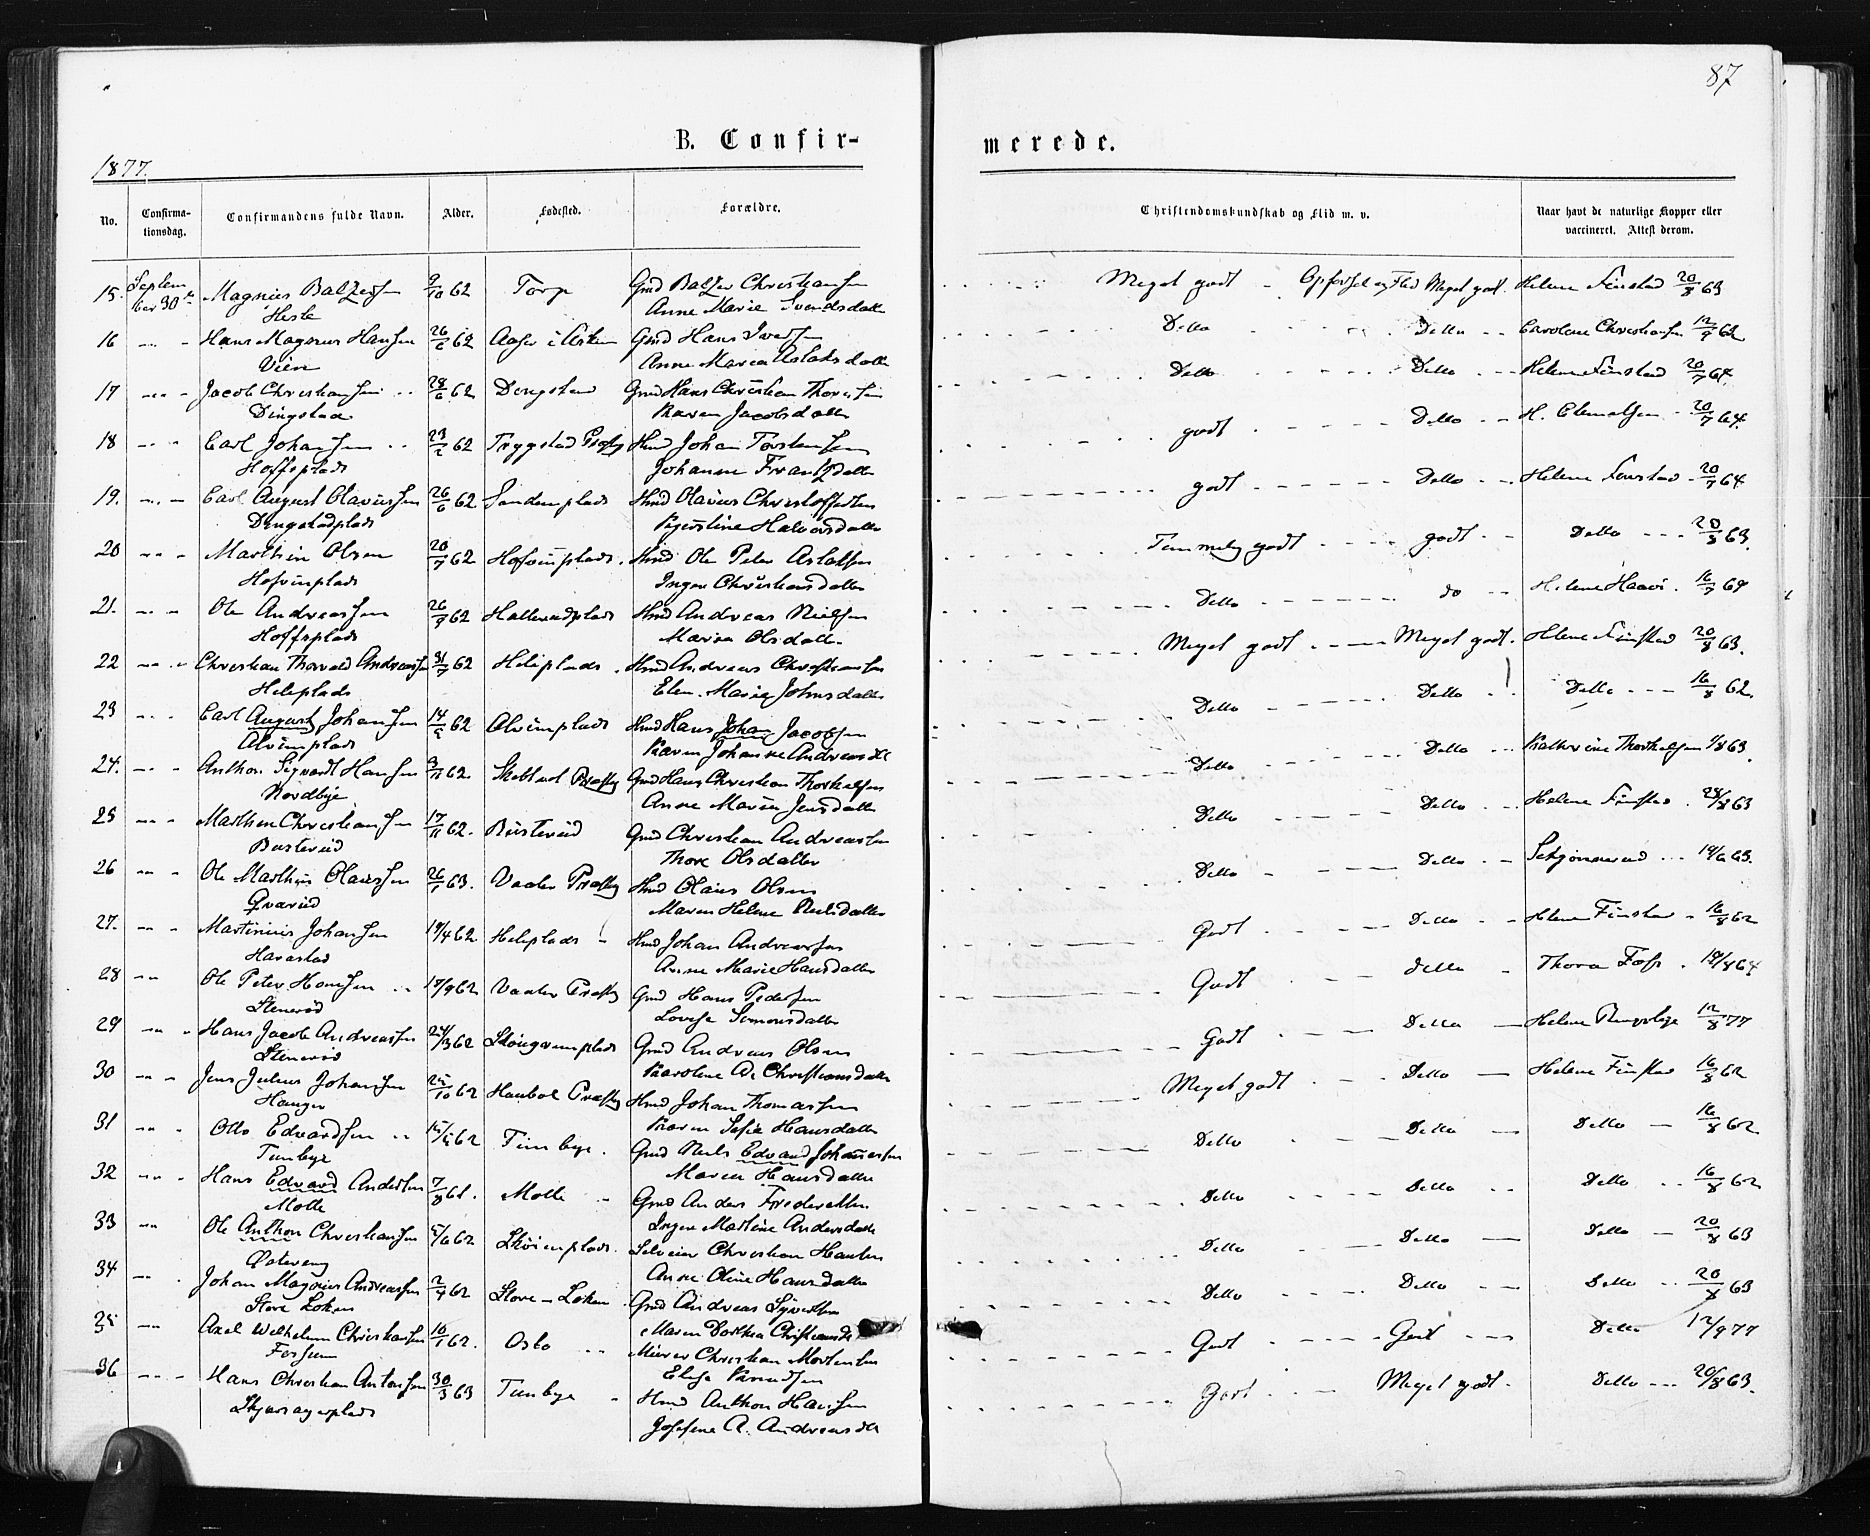 87
B. Confir- merede.
1877.
No. Confirma- tionsdag. Confirmandens fulde Navn. Alder. Fødested. Forældre. Christendomskundskab og Flid m. v. Naar havt de naturlige Kopper eller vaccineret. Attest derom.
15. Septem ber 30te Magnus Balzersen 9/10 62 Torp Gmd Balzer Christiansen Meget godt Opførsel og Flid Meget godt. Helene Finstad 20/8 63
Anne Marie Svendsdatter
16 Hans Magnus Hansen 26/6 62 Gmd Hans Iversen Ditto Ditto Caroline Christiansen 12/9 62
Vien Anne Maria Aslaksdatter
17 Jacob Christiansen 28/6 62 Dingstad Gmd Hans Christian Ditto Ditto Helene Finstad 20/7 64.
Dingstad Karen Jacobsdatter
18 Carl Johansen 62 Trygstad Præstg Hmd Johan Torstensen godt Ditto H. 20/7 64.
Hoffsplads Johanne Frantzdatter
19. Carl August Olaviussen 26/6 62 Sandemplads Hmd Olavius Christoffersen godt Ditto Helene Finstad 20/7 64
Dingstadplads Halvorsdatter
20 Marthin Olsen 20/7 62 Hofvinplads. Hmd Ole Peter Aslaksen Temmelig godt godt Ditto 20/8 63.
Hofvinplads Inger Christiansdatter
21. Ole Andreassen 26/7 62 Hmd Andreas Nielsen Ditto do Helene 16/7 64
Hoffsplads Maria Olsdatter
22 Christian Thorvald Andreassen 31/7 62 Heliplads Hmd Andreas Christiansen Meget godt Meget godt. Helene Finstad 20/8 63.
Heliplads Elen Maria Johnsdatter
23 Carl August Johansen 14/5 62 Alvimplads Hmd Hans Johan Jacobsen Ditto Ditto Ditto 16/8 62.
Alvimplads Karen Johanne Andreasdtr
24. Anthon Sigvardt Hansen 3/11 62. Skibtvet Præstg Gmd Hans Christian Thorkelsen Ditto Ditto Katherine Thorkelsen 1/8 63.
Nordbye Anne Maria Jensdatter
25 Marthin Christiansen 17/11 62. Busterud Gmd Christian Andreassen Ditto Ditto Helene Finstad 28/8 63
Busterud Thore Olsdatter
26 Ole Marthin Olaussen 26/1 63. Vaaler Præstg Hmd Olaus Olsen Ditto Ditto 14/6 63.
Qvarud Maren Helene Nielsdatter
27. Martinius Johansen 19/4 62. Heliplads Hmd Johan Andreassen Godt Ditto Helene Finstad 16/8 62
Harastad Anne Marie Hansdatter
28 Ole Peter Hansen 17/9 62 Vaaler Præstg Gmd Hans Pedersen Godt ditto Thora Foss 14/8 64
Stenerød Lovise Simonsdatter
29 Hans Jacob Andreassen 24/3 62 Gmd Andreas Olsen Godt Ditto Helene 12/8 77
Stenerød Karoline A. Christiansdatter
30 Jens Julius Johansen 25/10 62 Haabøl Præstg Hmd Johan Thomassen Meget godt Ditto Helene Finstad 16/8 62
Hauger Karen Sofie Hansdatter
31 Otto Edvardsen 15/5 62 Tunbye. Gmd Niels Edvard Johannessen Ditto Ditto Ditto 16/8 62.
Tunbye Maren Hansdatter
32 Hans Edvard Andersen 7/8 61. Molle Gmd Anders Fredriksen Ditto Ditto Ditto 16/8 62
Molle Ingine Martine Andersdatter
33 Ole Anthon Christiansen 5/6 62 Skoienplads. Selveier Christian Hansen Ditto Ditto Ditto 20/8 63
Østereng Anne Oline Hansdatter
34 Johan Magnus Andreassen 2/4 62 Store-Løken Gmd Andreas Syversen Ditto Ditto Ditto 20/8 63
Store Løken Maren Dorthea Christiansdtr
35 Axel Wilhelm Christiansen 10/1 62. Oslo Murer Christian Mortensen Godt Godt Ditto 12/9 77
Fossum Elise Knudsen
36 Hans Christian Antonsen 30/3 63 Tunbye Hmd Anthon Hansen Godt Meget godt. Ditto 20/8 63.
Josefine A. Andreasdtr